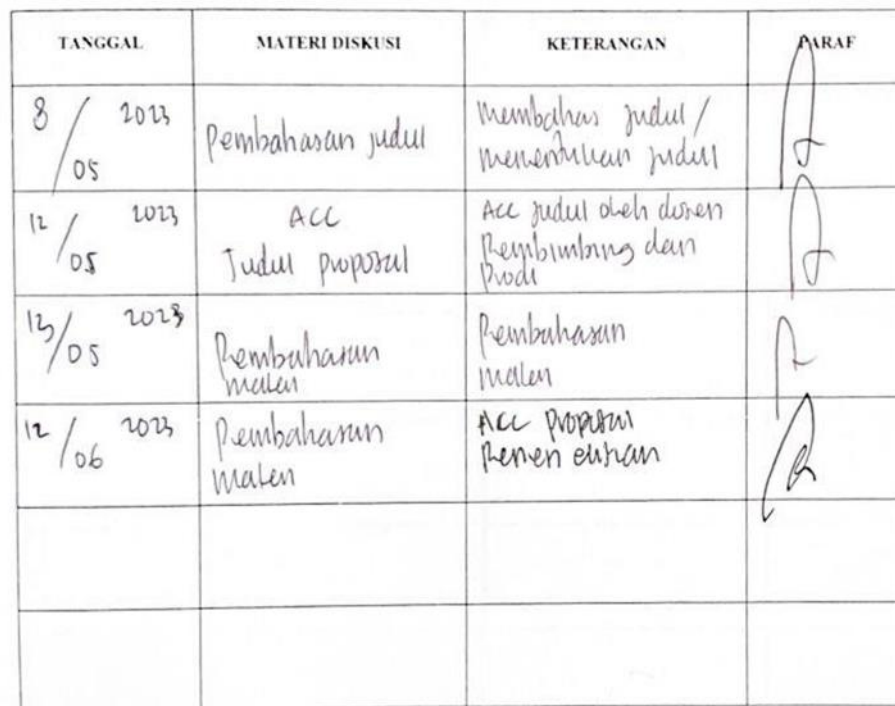 TANGGAL MATERI DISKUSI KETERANGAN PARAF
8/05 2023
Pembahasan judul
Membahas judul /
menentukan judul
12/05 2023
ACC
Judul proposal
Acc judul oleh dosen
Pembimbing dan
Prodi
13/05 2023
Pembahasan
materi
Pembahasan
materi
12/06 2023
Pembahasan
materi
ACC proposal
Penen elitian